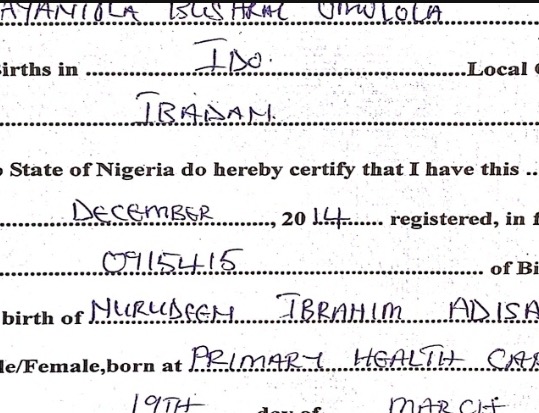 AYANIOLA BUSHRAL OMOLOLA
irths in ........ IDO. ........Local
IBADAN.
State of Nigeria do hereby certify that I have this ..
DECEMBER ........, 20 14 ..... registered, in f
0915415 ........ of Bi
birth of NURUDEEN IBRAHIM ADISA
le/Female,born at PRIMARY HEALTH CAR
19TH day of MARCH